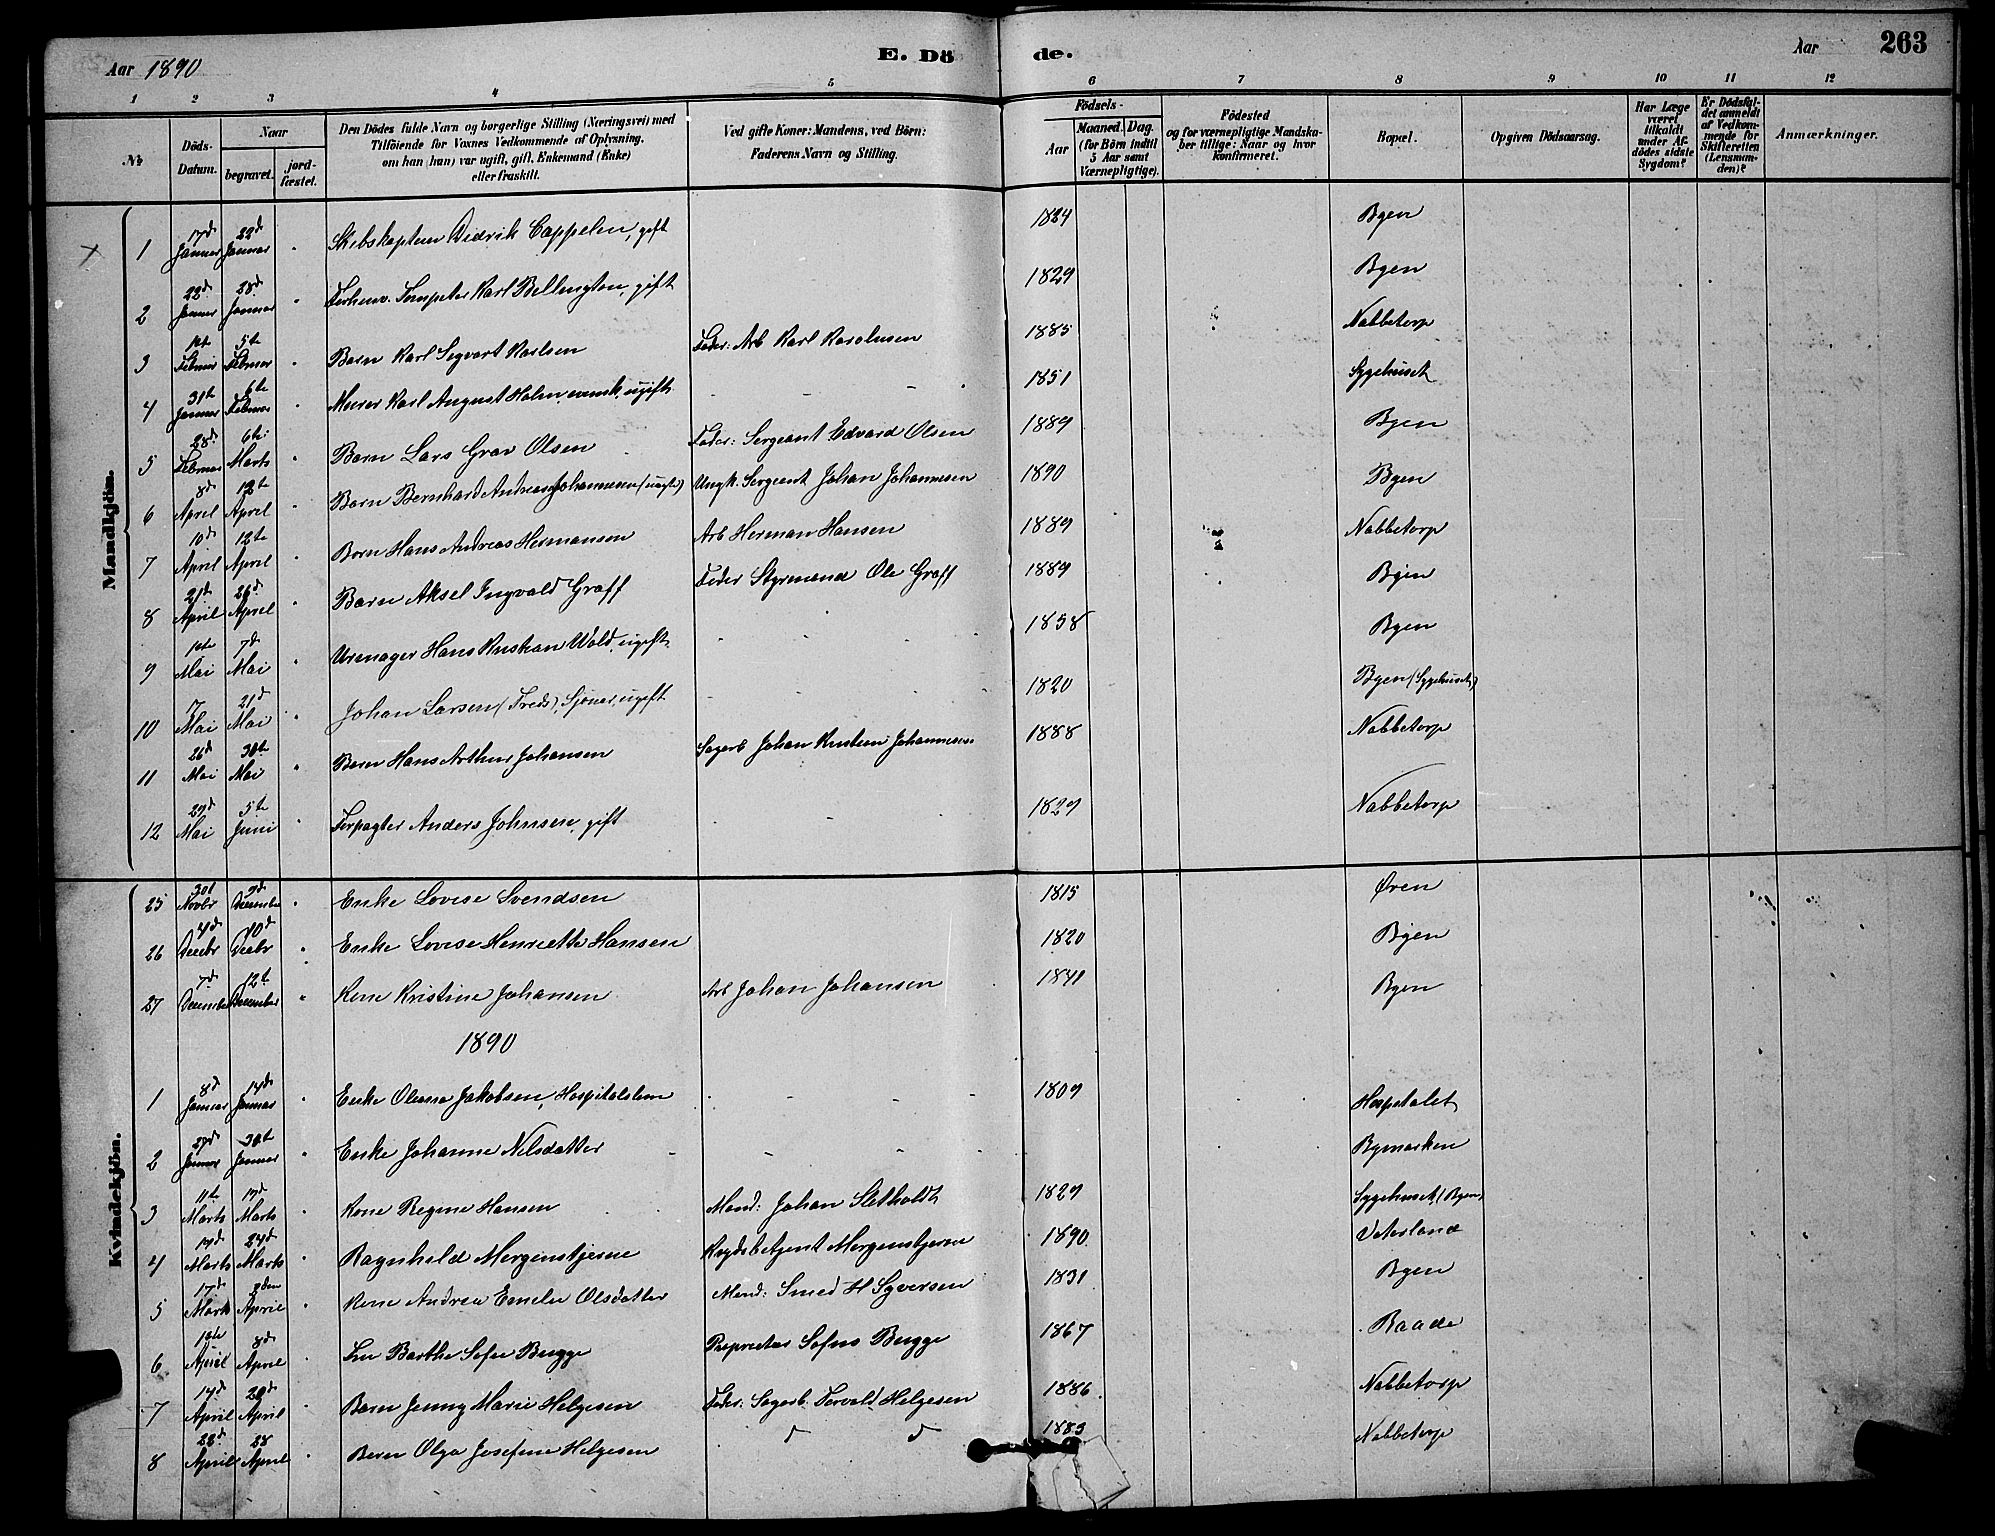 Aar 1890 E. Dö de. Aar 263
1 2 3 4 5 6 7 8 9 10 11 12
No
Döds-Datum.
Naar
begravet.
jord-fæstet.
Den Dödes fulde Navn og borgerlige Stilling (Næringsvei) med
Tilföiende for Voxnes Vedkommende af Oplysning,
om han (hun) var ugift, gift, Enkemand (Enke)
eller fraskilt.
Ved gifte Koner: Mandens, ved Börn:
Faderens Navn og Stilling.
Födsels-
Aar
Maaned. Dag.
(for Börn indtil
5 Aar samt
Værnepligtige).
Födested
og for værnepligtige Mandska-
ber tillige: Naar og hvor
konfirmeret.
Bopæl.
Opgiven Dödsaarsag.
Har Læge
været
tilkaldt
under Af-
dödes sidste
Sygdom?
Er Dödsfal-
det anmeldt
af Vedkom-
mende for
Skifteretten
(Lensman-
den)?
Anmærkninger.
Mandkjön.
1 17d Januar 22d Januar " Skibskaptein Didrik Cappelen, gift 1824 Byen
2 22d Januar 28d Januar " Karl Bellington, gift 1829 Byen
3 1ste Februar 5te Februar " Barn Karl Sigvart Karlsen Fader: Arb Karl Karolusen 1885 Nabbetorp
4 31te Januar 6te Februar " Murer Karl August Holm, svensk, ugift 1851 Sygehuset
5 28d Februar 6te Marts " Barn Lars Grav Olsen Fader: Sergeant Edvard Olsen 1889 Byen
6 8d April 12te April " Barn Bernhard Andreas Johannesen (uægte) Ungk. Sergeant Johan Johannesen 1890 Byen
7 10d April 12te April " Barn Hans Andreas Hermansen Arb Herman Hansen 1889 Nabbetorp
8 21d April 26d April " Barn Aksel Ingvald Graff Fader Styrmand Ole Graff 1889 Byen
9 1ste Mai 7d Mai " Urmager Hans Kristian Wold, ugift 1858 Byen
10 7 Mai 21d Mai " Johan Larsen (Freds), Sjömd, ugift 1820 Byen (Sygehuset)
11 26d Mai 30te Mai " Barn Hans Arthur Johansen Sagarb Johan Kristian Johannesen 1888 Nabbetorp
12 29d Mai 5te Juni " Forpagter Anders Johnsen, gift 1829 Nabbetorp
Kvindekjön.
25 30d Novbr 9d December " Enke Lovise Svendsen 1815 Øren
26 4d Decbr 10d Decbr " Enke Lovise Henriette Hansen 1820 Byen
27 7d December 12te December " Kone Kristine Johansen Arb Johan Johansen 1841 Byen
1890
1 8d Januar 14d Januar " Enke Oleana Jakobsen, Hospitalslem 1809 Hospitalet
2 27d Januar 30te Januar " Enke Johanne Nilsdatter Bymarken
3 11te Marts 17d Marts " Kone Regine Hansen Mand: Johan Sletholdt 1829 Sygehuset (Byen)
4 19d Marts 24d Marts " Ragnhild Morgenstjerne Morgenstjerne 1890 Vaterland
5 17d Marts 2den April " Kone Andrea Emelie Olsdatter Mand: Smed H Syversen 1831 Byen
6 1ste April 8d April " Fru Barthe Sofie Bugge Proprietær Sofus Bugge 1867 Raade
7 14d April 20d April " Barn Jenny Marie Helgesen Fader: Sagarb. Torvald Helgesen 1886 Nabbetorp
8 22d April 28 April " Barn Olga Josefine Helgesen d d 1883 Nabbetorp